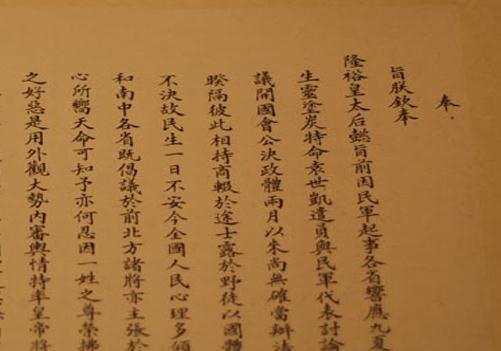 奉
旨朕欽奉
隆裕皇太后懿旨前因民軍起事各省響應九夏
生靈塗炭特命袁世凱遣員與民軍代表討論
議開國會公決政體兩月以來尚無確當辦法
暌隔彼此相持商輟於途士露於野徒以國體
不決故民生一日不安今全國人民心理多傾
和南中各省既倡議於前北方諸將亦主張於
心所嚮天命可知予亦何忍因一姓之尊榮拂
之好惡是用外觀大勢內審輿情特率皇帝將